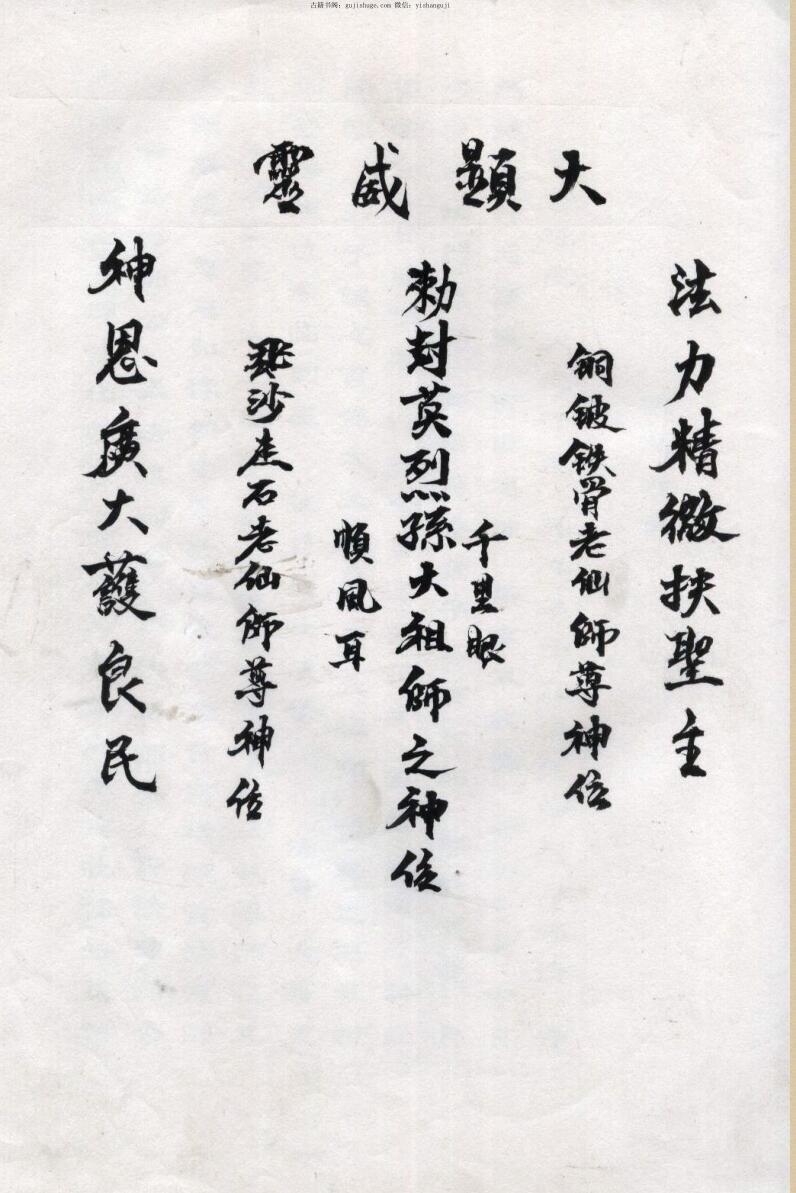 古籍书阁：gujishuge.com 微信：yishanguji
大顯威靈
法力精微扶聖主
銅鈹铁骨老仙師尊神位
千里眼
勅封英烈孫大祖師之神位
順風耳
飛沙走石老仙師尊神位
神恩廣大護良民